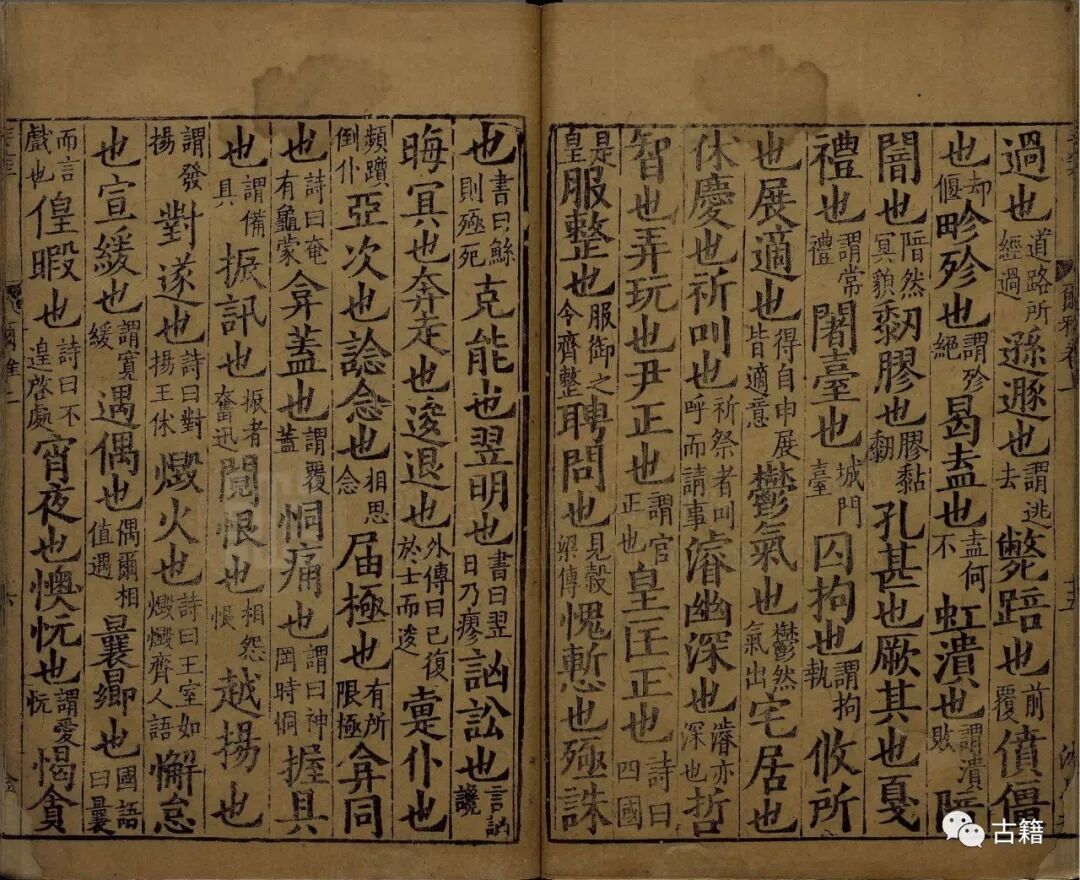 過也道路所經過遜遯也謂逃去斃踣也前覆僨僵
也却偃畛殄也謂殄絕曷盍也盍何不虹潰也謂潰敗隌
闇也隌然冥貌䵒膠也膠黏䵒孔甚也厥其也戛
禮也謂常禮闍臺也城門臺囚拘也謂拘執攸所
也展適也得自申展皆適意鬱氣也鬱然氣出宅居也
休慶也祈叫也祈祭者叫呼而請事濬幽深也濬亦深也哲
智也弄玩也尹正也謂官正也皇匡正也詩曰四國
是皇服整也服御之令齊整聘問也見穀梁傳愧慙也殛誅
爾雅卷上
十五
也書曰鯀則殛死克能也翌明也書曰翌日乃瘳訩訟也言訩讒
晦冥也奔走也逡退也外傳曰已復於士而逡疐仆也
頻躓倒仆亞次也諗念也相思念屆極也有所限極弇同
也詩曰奄有龜蒙弇蓋也謂覆蓋恫痛也謂曰神罔時恫握具
也謂備具振訊也振者奮迅鬩恨也相怨恨越揚也
謂發揚對遂也詩曰對揚王休燬火也詩曰王室如燬燬齊人語懈怠
也宣緩也謂寬緩遇偶也偶爾相值遇曩曏也國語曰曩
而言戲也偟暇也詩曰不遑啓處宵夜也懊忨也謂愛忨愒貪
古籍